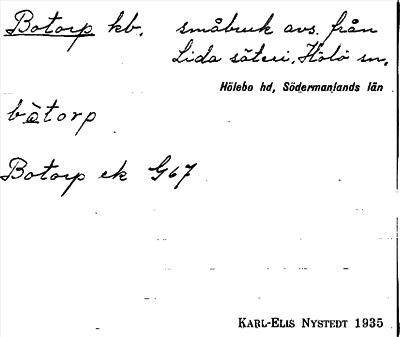 Botorp kb. småbruk avs. från
Lida säteri, Hölö sn.
Hölebo hd, Södermanlands län
bo̤torp
Botorp ek G67
KARL-ELIS NYSTEDT 1935